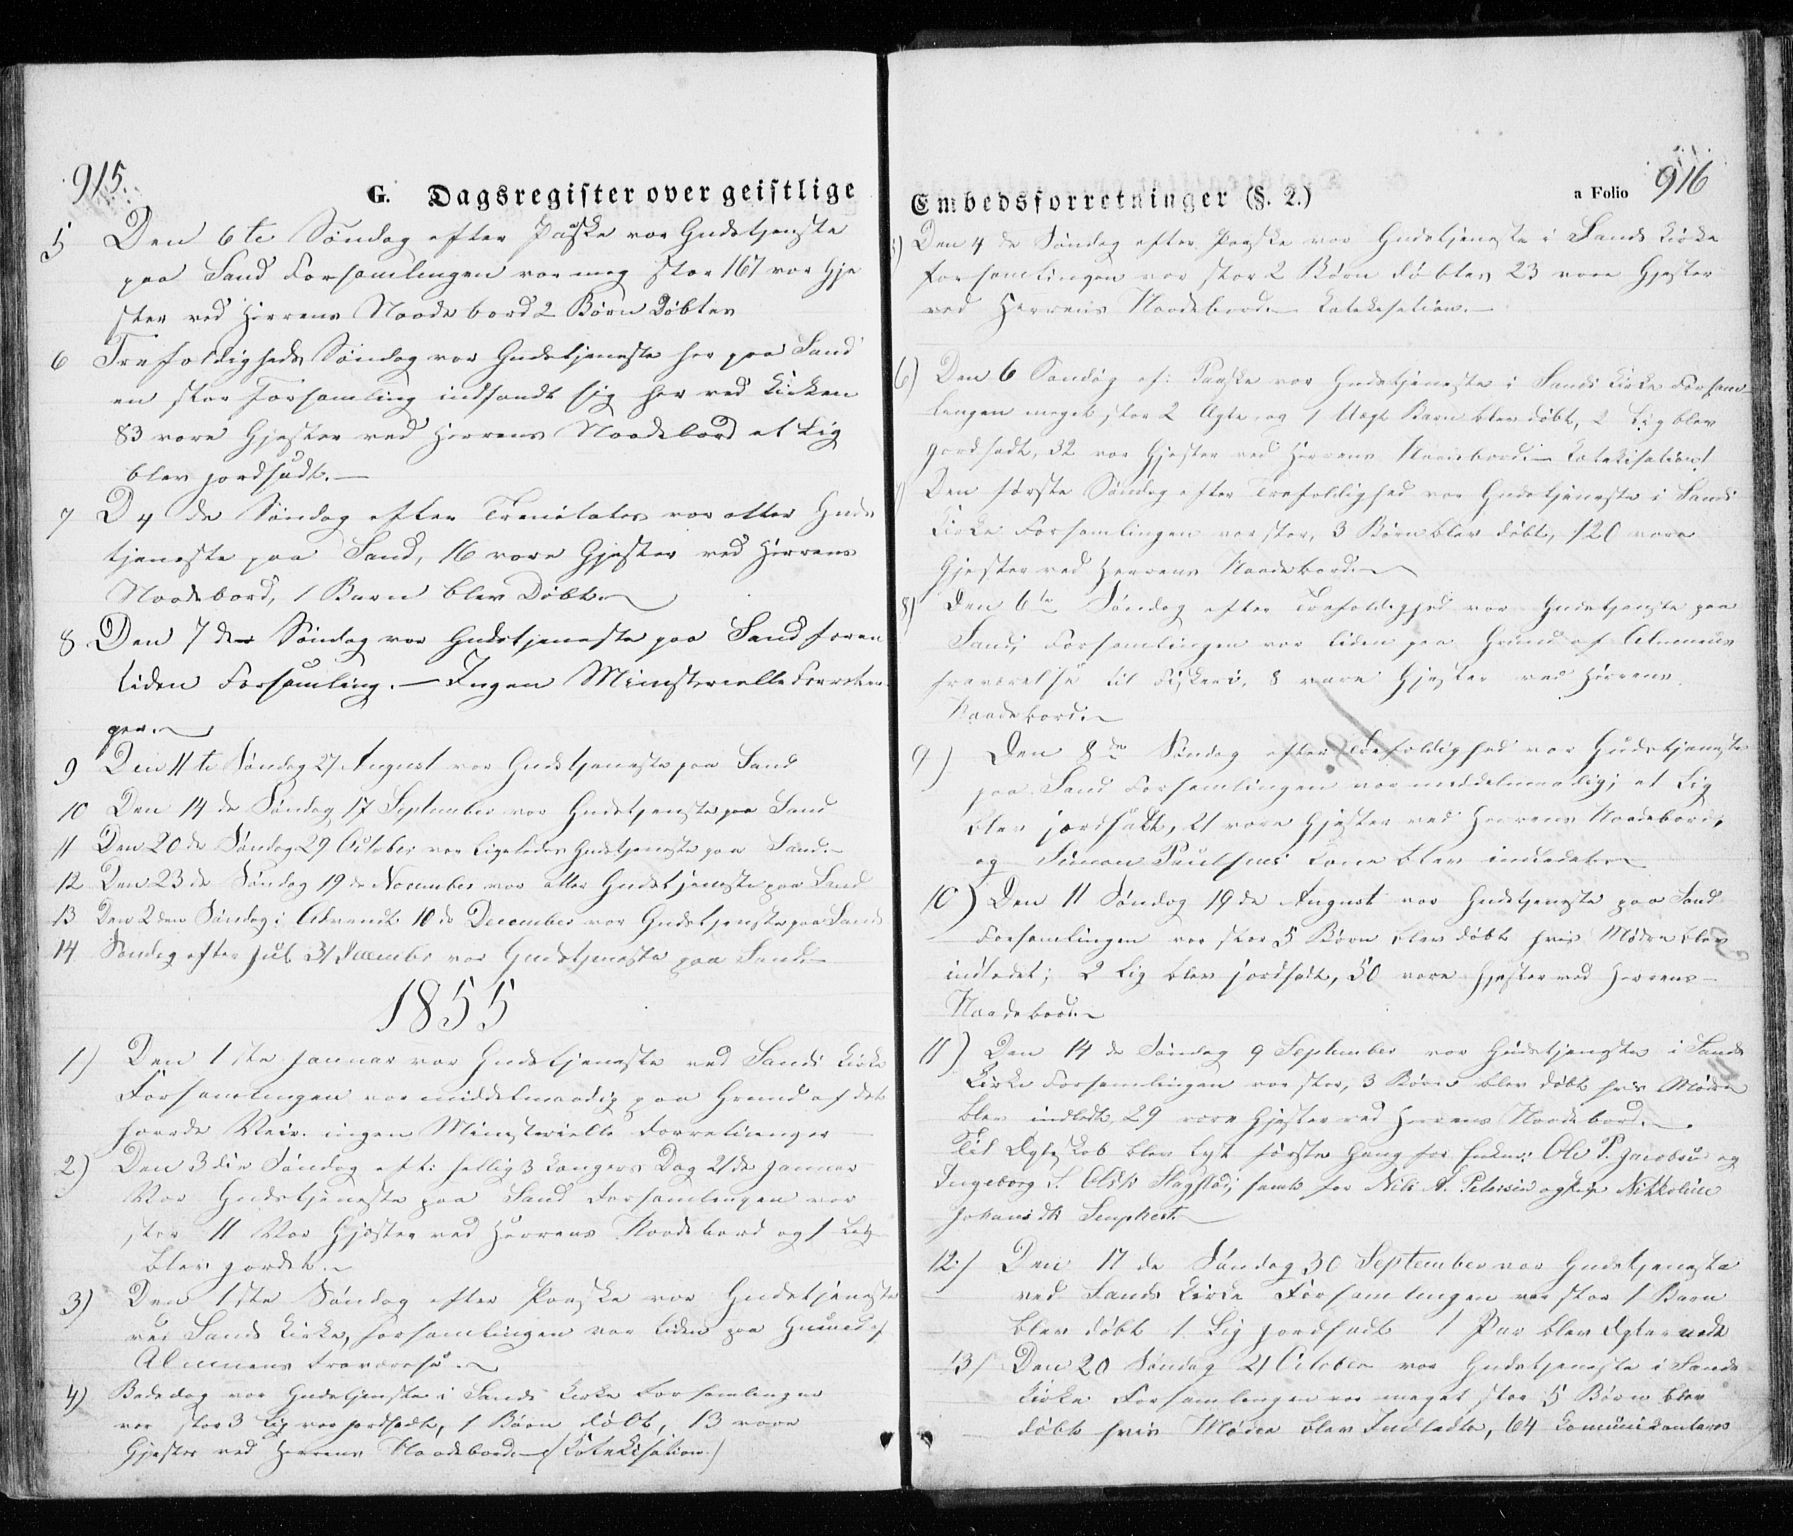 915.
G. Dagsregister over geistlige
5 Den 6te Søndag efter Paaske var Gudstjenste
paa Sand Forsamlingen var meg stor 167 var Gje
ster ved Herrens Naade bord 2 Børn Døbtes
6 Trefoldigheds Søndag var Gudstjeneste her paa Sand
en stor Forsamling indfandt sig her ved Kirken
83 vare Gjester ved Herrens Naadebord et Lig
blev jordfæst.—
7 D 4 de Søndag efter Trinitates var atter Guds
tjeneste paa Sand, 16 vare Gjester ved Herrens
Naadebord, 1 Barn blev Døbt.
8 Den 7 de Søndag var Gudstjeneste paa Sand for en
liden Forsamling.— Ingen Ministerielle Forretnin
ger.
9 Den 11te Søndag 27 August var Gudstjeneste paa Sand
10 Den 14 de Søndag 17 September var Gudstjenste paa Sand
11 Den 20 de Søndag 29 October var ligeledes Gudstjeneste paa Sand.—
12 Den 23 de Søndag 19 de November var atter Gudstjeneste paa Sand
13 Den 2den Søndag i Advendt 10 de December var Gudstjenste paa Sand
14 Søndag efter Jul 31 December var Gudstjeneste paa Sand.—
1855
1) Den 1ste Januar var Gudstjeneste ved Sands Kirke
Forsamlingen var middelmaadig paa Grund af det
haarde Veir. ingen Ministerielle Forretninger
2) Den 3die Søndag eft: hellig 3 Kongers Dag 21de Januar
Var Gudstjeneste paa Sand Forsamlingen var
stor 11 Var Gjester ved Herrens Naadebord og 1 Lig
blev jordet.
3) Den 1ste Søndag efter Paaske var Gudstjeneste
ved Sands Kirke, forsamlingen var liden paa Grund af
Almuens Fraværelse.
4) Bededag var Gudstjenste i Sands Kirke Forsamlingen
var stor 3 Lig var jordfæstt, 1 Børn døbt, 13 vare
Gjester ved Herrens Naadebord.—(Katekisation.)
Embedsforretninger (§. 2.)
a Folio 916
5) Den 4 de Søndag efter Paaske var Gudstjeneste i Sands Kirke
forsamlingen var stor 2 Børn døbtes 23 vare Gjester
ved Herrens Naadebord.— Katekesation.—
6) Den 6 Søndag ef: Paaske var Gudstjeneste i Sands Kirke Forsam
lingen meget stor 2 Ægte og 1 Uægt Barn blev døbt, 2 Lig blev
jordfæst, 32 var Gjester ved Herrens Naadebord.— Katekisation!
Den første Søndag efter Trefoldighed var Gudstjeneste i Sands
Kirke Forsamlingen var stor, 3 Børn blev døbt, 120 vare
Gjester ved Herrens Naadebord.
8) Den 6te Søndag efter Trefoldighed var Gudstjenste paa
Sand, Forsamlingen var liden paa Grund af Almuens
fraværelse til Fiskeri, 8 vare Gjester ved Herrens
Naadebord.
9) Den 8de Søndag efter Trefoldighed var Gudstjeneste
paa Sand Forsamlingen var middelmaadig; et Lig
blev jordfæstt, 21 vare Gjester ved Herrens Naadebord,
og Simon Paulsens Kone blev indledet.
10) Den 11 Søndag 19 de August var Gudstjeneste paa Sand
Forsamlingen var stor 5 Børn blev døbt hvis Mødre blev
indledet; 2 Lig blev jordfæst, 50 vare Gjester ved Herrens
Naadebord.
11) Den 14 de Søndag 9 September var Gudstjenste i Sands
Kirke Forsamlingen var stor, 3 Børn blev døbt hvis Mødre
blev indledt, 29 vare Gjester ved Herrens Naadebord.
Til Ægteskab blev lyst første Gang for Enkem: Ole P. Jacobsen og
Ingeborg S. Olsdtr Slagstad, samt for Nils A. Petersen og Pige Nikkoline
Johans dtr
12.) Den 17 de Søndag 30 September var Gudstjeneste
ved Sands Kirke Forsamlingen var stor 1 Barn
blev døbt 1 Lig jordfæst 1 Par blev Ægteviede
13) Den 20 Søndag 21 October var Gudstjeneste i Sands
Kirke Forsamlingen var meget stor 5 Børn blev
døbt hvis Mødre blev Indledte, 64 Komunikantere